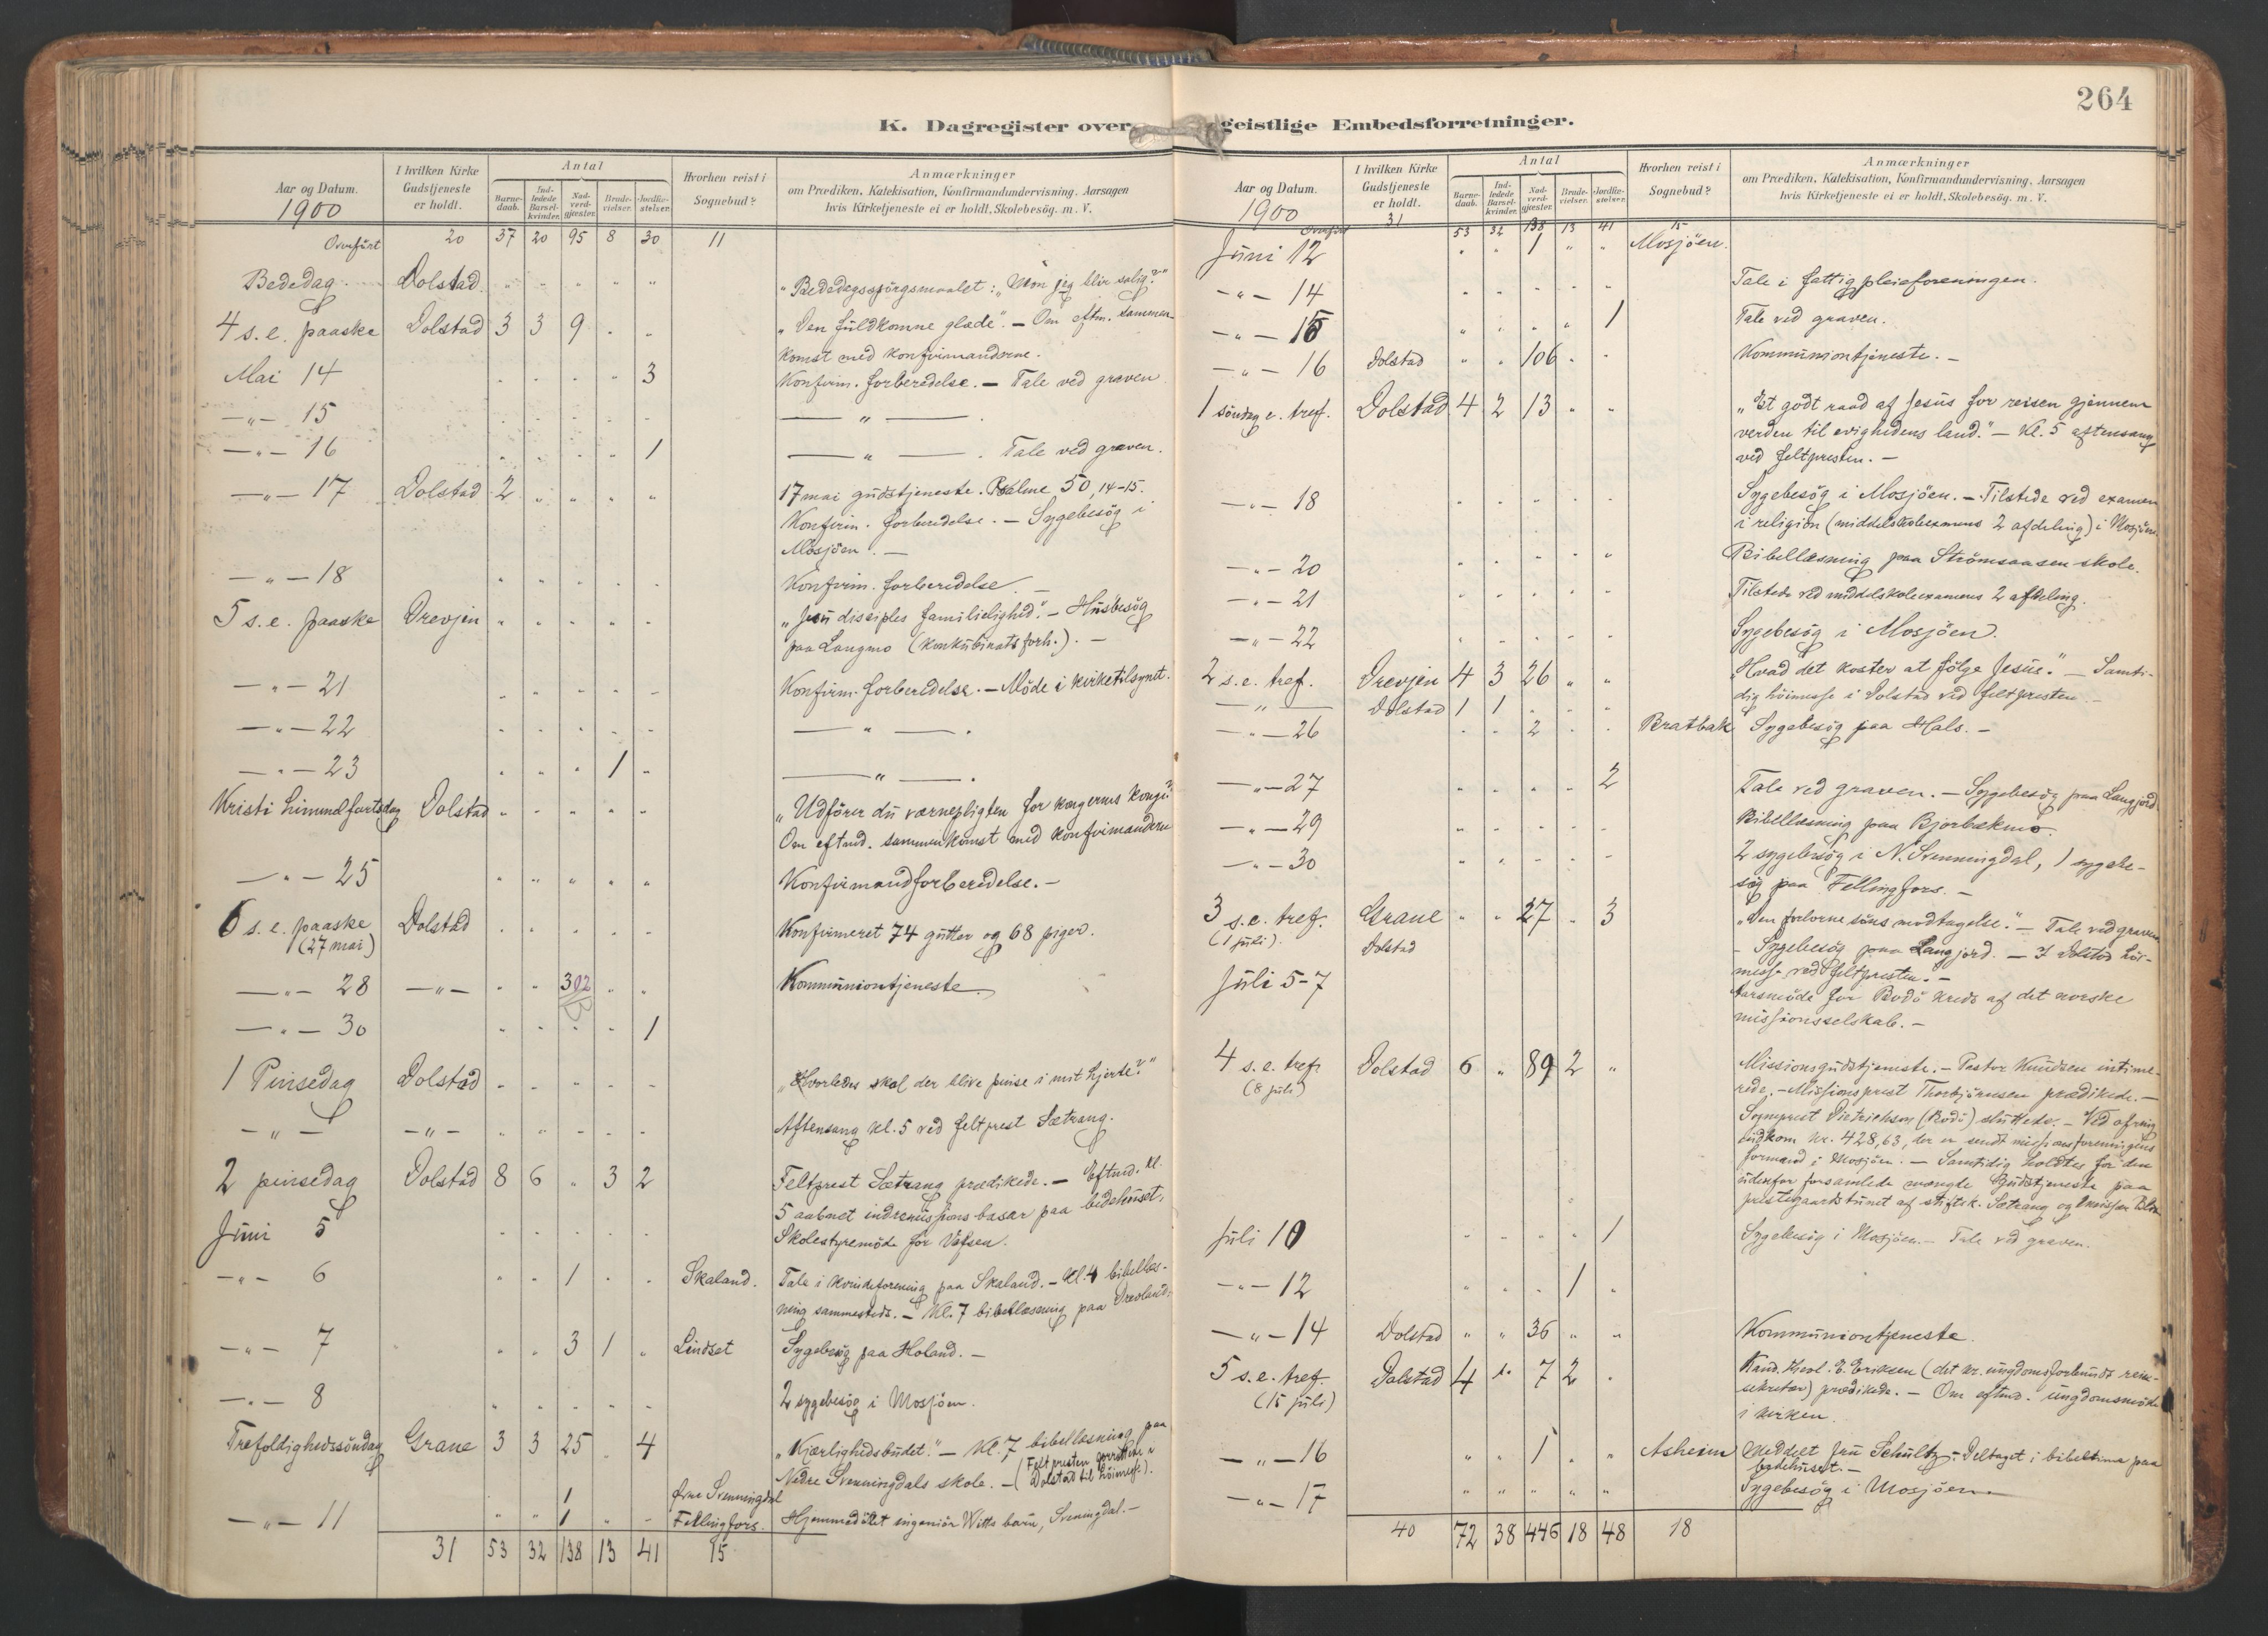 264
K. Dagregister over geistlige Embedsforretninger.
Aar og Datum. 1900
I hvilken Kirke Gudstjeneste er holdt.
Antal
Barnedaab. Indledede Barselkvinder. Nadverdgjæster. Brudevielser. Jordfæstelser.
Hvorhen reist i Sognebud?
Anmærkninger
om Prædiken, Katekisation, Konfirmandundervisning, Aarsagen
hvis Kirketjeneste ei er holdt, Skolebesög. m. V.
Overført 20 37 20 95 8 30 11
Bededag. Dolstad. " " " " " "Bededagsspörgsmaalet: "Mon jeg blir salig?"
4 s. e. paaske Dolstad 3 3 9 " " "Den fuldkomne glæde". - Om eftm. sammen-
komst med konfirmanderne.
Mai 14 " " " " 3 Konfirm. forberedelse. - Tale ved graven
-"- 15 " " " " " —"—.
-"- 16 " " " " 1 —"—. Tale ved graven.
-"- 17 Dolstad 2 " " " " 17 mai gudstjeneste. Psalme 50, 14-15.
Konfirm. forberedelse. - Sygebesög i
Mosjöen. -
-"- 18 " " " " " Konfirm. forberedelse. -
5 s. e. paaske Drevjen " " " " " "Jesu disciples familielighed". - Husbesög
paa Langmo (konkubinatsforh.). -
-"- 21 " " " " " Konfirm. forberedelse. - Möde i kirketilsynet.
-"- 22 " " " " " —"—.
-"- 23 " " " 1 " —"—.
Kristi himmelfartsdag Dolstad " " " " " "Udfører du værnepligten for kongernes konge?"
Om eftmd. sammenkomst med konfirmanderne
-"- 25 " " " " " Konfirmandforberedelse. -
6 s. e. paaske Dolstad " " " " " Konfirmeret 74 gutter og 68 piger.
(27 mai)
-"- 28 -"- " " 302 " " Kommuniontjeneste.
-"- 30 " " " " 1
1 Pinsedag Dolstad " " " " " "Hvorledes skal der blive pinse i mit hjerte?"
-"- -"- " " " " " Aftensang kl. 5 ved feltprest Sætrang.
2 pinsedag Dolstad 8 6 " 3 2 Feltprest Sætrang prædikede. - Eftmd. kl.
5 aabnet indremissionsbasar paa bedehuset.
Juni 5 " " " " " Skolestyremöde for Vefsen.
-"- 6 " " 1 " " Skaland. Tale i kvindeforening paa Skaland. - Kl. 4 bibellæs-
ning sammesteds. - Kl. 7 bibellæsning paa Drevland.
-"- 7 " " 3 1 " Lindset Sygebesög paa Holand. -
-"- 8 " " " " " 2 sygebesög i Mosjöen.
Trefoldighedssöndag Grane 3 3 25 " 4 "Kjærlighedsbudet." - Kl. 7 bibellæsning paa
Nedre Svenningdals skole. - (Feltpresten forrettede i Dolstad til höimesse).
1 Övre Svenningdal
-"- 11 " " 1 " " Fellingfors. Hjemmedöbt ingeniör Witts barn, Svenningdal. -
31 53 32 138 13 41 15
Aar og Datum. 1900
I hvilken Kirke Gudstjeneste er holdt.
Antal
Barnedaab. Indledede Barselkvinder. Nadverdgjæster. Brudevielser. Jordfæstelser.
Hvorhen reist i Sognebud?
Anmærkninger
om Prædiken, Katekisation, Konfirmandundervisning, Aarsagen
hvis Kirketjeneste ei er holdt, Skolebesög. m. V.
Overført 31 53 32 138 13 41 15
Juni 12 " " 1 " " Mosjöen.
-"- 14 " " " " " Tale i fattigpleieforeningen.
-"- 15 " " " " 1 Tale ved graven.
-"- 16 Dolstad " " 106 " " Kommuniontjeneste. -
1 söndag e. tref. Dolstad 4 2 13 " " "Et godt raad af Jesus for reisen gjennem
verden til evighedens land." - Kl. 5 aftensang
ved feltpresten. -
-"- 18 " " " " " Sygebesög i Mosjöen. - Tilstede ved examen
i religion (middelskoleexamens 2 afdeling) i Mosjöen.
-"- 20 " " " " " Bibellæsning paa Strömsaasen skole.
-"- 21 " " " " " Tilstede ved middelskoleexamens 2 afdeling.
-"- 22 " " " " " Sygebesög i Mosjöen.
2 s. e. tref. Drevjen 4 3 26 " " "Hvad det koster at fölge Jesus." - Samti-
dig höimesse i Dolstad ved feltpresten. -
-"- Dolstad 1 1 " " "
-"- 26 " " 2 " " Bratbak Sygebesög paa Hals. -
-"- 27 " " " " 2 Tale ved graven. - Sygebesög paa Langjord.
-"- 29 " " " " " Bibellæsning paa Bjorbækmo.
-"- 30 " " " " " 2 sygebesög i N. Svenningdal, 1 sygebe-
sög paa Fellingfors. -
3 s. e. tref. Grane " " 27 " 3 "Den forlorne söns modtagelse." - Tale ved graven
(1 juli). Dolstad - Sygebesög paa Langjord. - I Dolstad höi-
messe ved feltpresten. -
Juli 5-7 Aarsmöde for Bodö kreds af det norske
missionsselskab. -
4 s. e. tref. Dolstad 6 " 89 2 " Missionsgudstjeneste. - Pastor Knudsen intime-
(8 juli) rede. - Missionsprest Thorbjörnsen prædikede. -
Sogneprest Dietrichson (Bodö) sluttede. - Ved ofring
indkom kr. 428,63, der er sendt missionsforeningens
formand i Mosjöen. - Samtidig holdtes for den
udenfor forsamlede mængde gudstjeneste paa
prestegaardstunet af stiftsk. Sætrang og
Juli 10 " " " " 1 Sygebesög i Mosjöen. - Tale ved graven.
-"- 12 " " " 1 "
-"- 14 Dolstad " " 36 " " Kommuniontjeneste.
5 s. e. tref. Dolstad 4 " 7 2 " Kand. theol. E. Eriksen (det kr. ungdomsforbunds reise-
(15 juli) sekretær) prædikede. - Om eftmd. ungdomsmöde
i kirken.
-"- 16 " " 1 " " Asheim Meddelt fru Schultz. - Deltaget i bibeltime paa
bedehuset. -
-"- 17 " " " " " Sygebesög i Mosjöen.
40 72 38 446 18 48 18